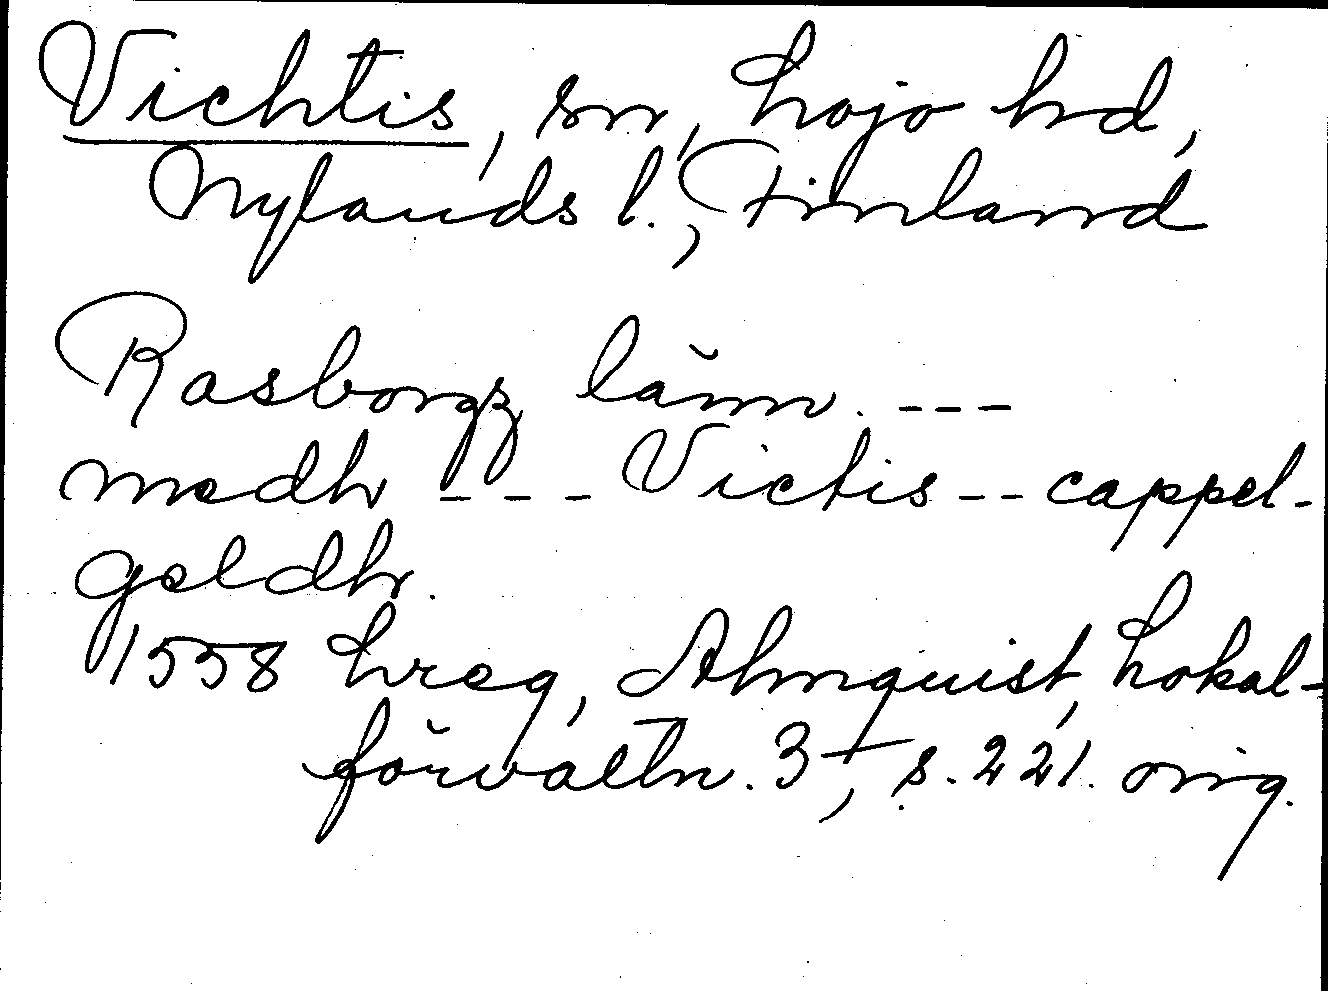 Vichtis, sn, Lojo hd,
Nylands l., Finland
Rasborgz länn. ---
medh --- Victis -- cappel-
geldh.
1558 Lreg, Almquist, Lokal-
förvaltn. 3, s. 221. orig.